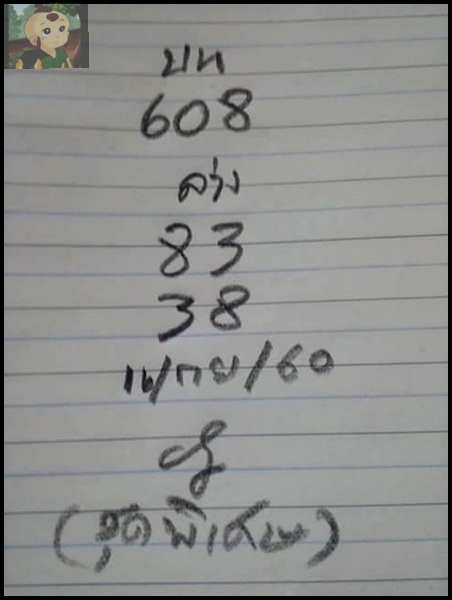 บน
608
ล่าง
83
38
16/กย/60
(ชุดพิเศษ)